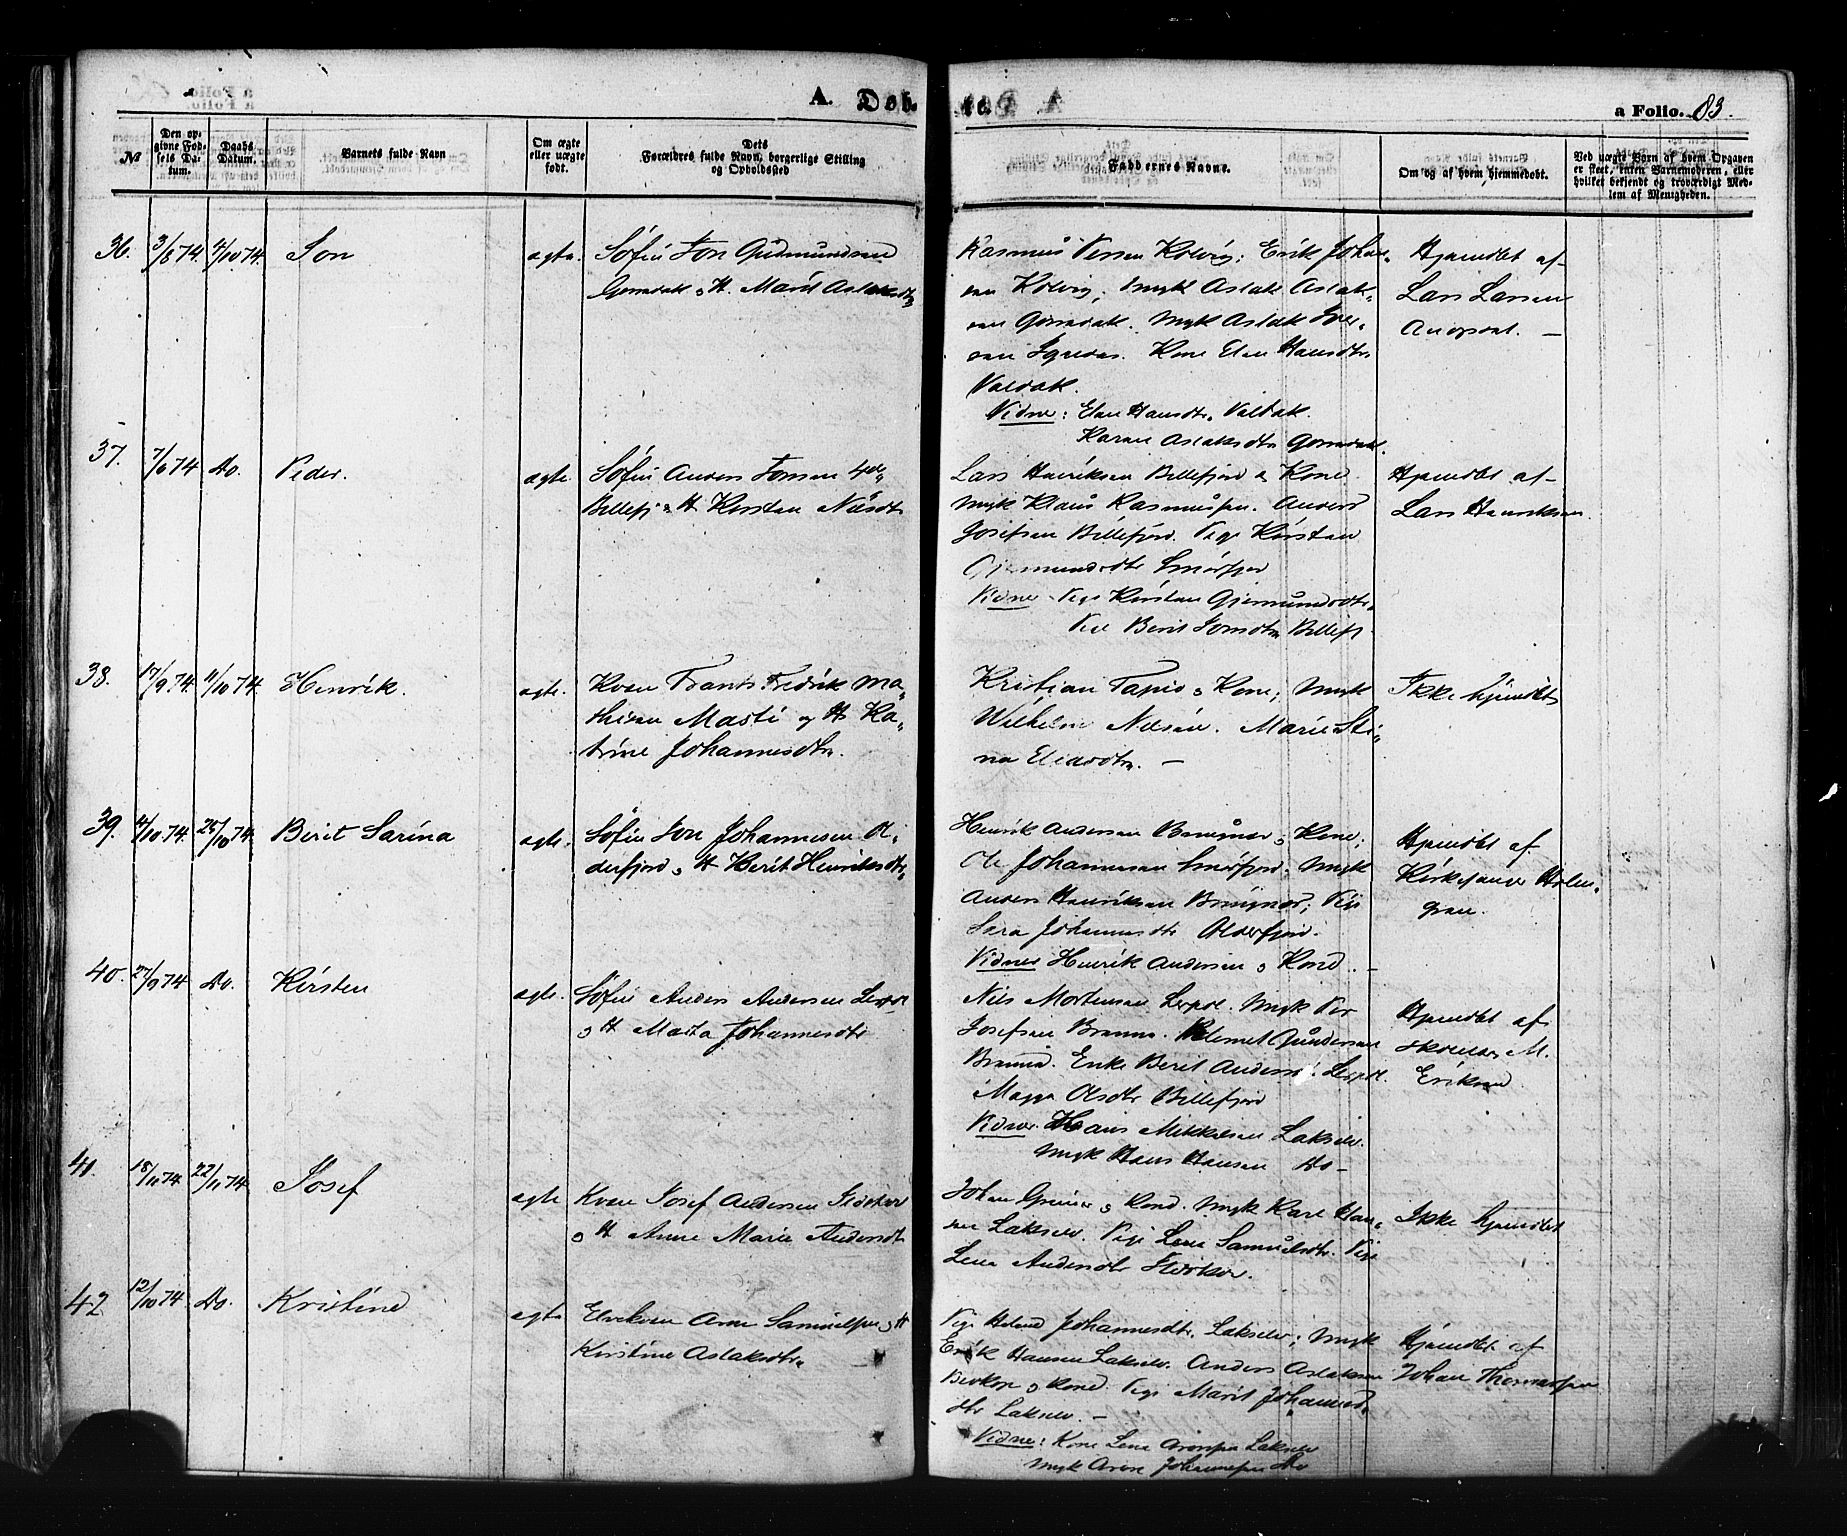 A. Døbte.
a Folio. 83.
№
Den opgivne Fødsels Datum.
Daabs Datum.
Barnets fulde Navn
Om ægte eller uægte født.
Dets Forældres fulde Navn, borgerlige Stilling og Opholdssted
Faddernes Navne.
Om og af hvem hjemmedøbt.
Ved uægte Børn af hvem Opgaven er skeet, enten Barnemoderen, eller hvilket bekjendt og troværdigt Medlem af Menigheden.
36. 3/8 74. 4/10 74. Jon ægte. Søfin Jon Gudmundsen
& H. Marit Aslaksdtr
Rasmus Persen Kolvig; Erik Johan-
sen Kolvig; Ungk Aslak Aslak-
sen. Ungk Aslak Iver-
sen. Kone Elen Hansdtr
Valdak.
Vidne: Elen Hansdtr Valdak.
Karen Aslaksdtr
Hjemdbt af
Lars Larsen
37. 7/6 74 Do. Peder. ægte. Søfin Anders Jonsen
Billefj & H Kirsten Nilsdtr
Lars Henriksen Billefjord & Kone
Ungk Klaus Rasmussen. Anders
Josefsen Billefjord. Pige Kirsten
Gjermundsdtr Smørfjor
Vidne Pige Kirsten Gjermundsdtr
Pige Berit Jonsdtr Billefj
Hjemdbt af
Lars Henriksen
38. 17/9 74. 11/10 74. Henrik. ægte. Kvæn Frants Fredrik Ma-
thisen Masti og H Ka-
trine Johannesdtr.
Kristian Tapio & Kone; Ungk
Wilhelm Nilsen. Marie Sti-
na Eliasdtr. —
Ikke hjemdbt
39. 4/10 74. 25/10 74. Berit Sarina ægte. Søfin Jon Johannesen Ol-
derfjord & H Berit Henriksdtr
Henrik Andersen & Kone;
Ole Johannesen Smørfjord; Ungk
Anders Henriksen; Pige
Sara Johannesdtr Olderfjord.
Vidner Henrik Andersen & Kone. —
Hjemdbt af
Kirkesanger Holm-
gren.
40. 27/9 74 Do. Kirsten ægte. Søfin Anders Andersen
& H Marta Johannesdtr
Nils Mortensen. Ungk Per
Josefsen Brenna. Klemet Gundersen
Brenna. Enke Berit Andersd
Magga Olsdtr Billefjord
Vidner. Hans Mikkelsen Lakselv.
Ungk Hans Hansen Do —
Hjemdbt af
M.
Eriksen
41. 18/11 74 22/11 74 Josef ægte Kvæn Josef Andersen
& H Anne Marie Andersdtr
Johan & Kone. Ungk Karl Han-
sen Lakselv. Pige Lena Samuelsdtr. Pige
Lena Andersdtr
Ikke hjemdbt
42 12/10 74. Do. Kristine ægte Elvekvæn Aron Samuelsen & H
Kirstine Aslaksdtr
Pige Helene Johannesdtr. Lakselv; Ungk
Erik Hansen Lakselv. Anders Aslaksen
& Kone. Pige Marit Johannes-
dtr Lakselv. —
Vidne: Kone Lena Lakselv
Ungk Johannesen Do
Hjemdbt af
Johan Thomassen